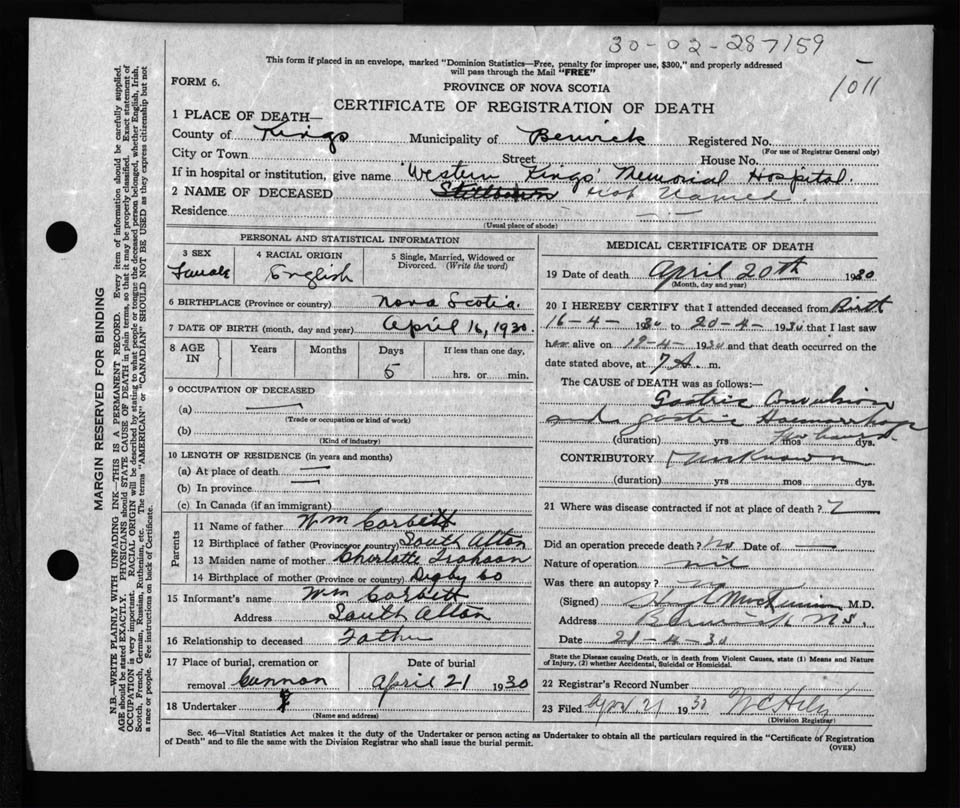 30-02-287159
1011
This form if placed in an envelope, marked "Dominion Statistics—Free, penalty for improper use, $300," and properly addressed
will pass through the Mail "FREE"
FORM 6.
PROVINCE OF NOVA SCOTIA
CERTIFICATE OF REGISTRATION OF DEATH
1 PLACE OF DEATH—
County of Kings Municipality of Berwick Registered No.
(For use of Registrar General only)
City or Town Street House No.
If in hospital or institution, give name Western Kings' Memorial Hospital.
2 NAME OF DECEASED Stillborn not Named.
Residence
(Usual place of abode)
PERSONAL AND STATISTICAL INFORMATION
3 SEX
Female
4 RACIAL ORIGIN
English
5 Single, Married, Widowed or
Divorced. (Write the word)
6 BIRTHPLACE (Province or country) Nova Scotia
7 DATE OF BIRTH (month, day and year) April 16, 1930.
8 AGE
IN
Years Months Days If less than one day,
5 hrs. or min.
9 OCCUPATION OF DECEASED
(a)
(Trade or occupation or kind of work)
(b)
(Kind of industry)
10 LENGTH OF RESIDENCE (in years and months)
(a) At place of death
(b) In province
(c) In Canada (if an immigrant)
Parents
11 Name of father Wm Corbett
12 Birthplace of father (Province or country) South Alton
13 Maiden name of mother Charlotte
14 Birthplace of mother (Province or country) Digby Co
15 Informant's name Wm Corbett
Address South Alton
16 Relationship to deceased Father
17 Place of burial, cremation or
removal Cannon
Date of burial
April 21 1930
18 Undertaker
(Name and address)
MEDICAL CERTIFICATE OF DEATH
19 Date of death April 20th 1930
(Month, day and year)
20 I HEREBY CERTIFY that I attended deceased from Birth
16-4- 1930 to 20-4- 1930 that I last saw
her alive on 19-4- 1930 and that death occurred on the
date stated above, at 7 A. m.
The CAUSE OF DEATH was as follows:
Gastric Convulsion
and gastric Haemorrhage
(duration) yrs mos dys.
CONTRIBUTORY Unknown
(duration) yrs mos dys.
21 Where was disease contracted if not at place of death? ?
Did an operation precede death? No Date of
Nature of operation nil
Was there an autopsy? no
(Signed) M.D.
Address Berwick N.S.
Date 21-4-30
State the Disease causing Death, or in death from Violent Causes, state (1) Means and Nature
of Injury, (2) whether Accidental, Suicidal or Homicidal.
22 Registrar's Record Number
23 Filed Apr 21 1930
(Division Registrar)
Sec. 46—Vital Statistics Act makes it the duty of the Undertaker or person acting as Undertaker to obtain all the particulars required in the "Certificate of Registration
of Death" and to file the same with the Division Registrar who shall issue the burial permit.
(OVER)
MARGIN RESERVED FOR BINDING
N.B.—WRITE PLAINLY WITH UNFADING INK—THIS IS A PERMANENT RECORD. Every item of information should be carefully supplied.
AGE should be stated EXACTLY. PHYSICIANS should STATE CAUSE OF DEATH in plain terms, so that it may be properly classified. Exact statement of
OCCUPATION is very important. RACIAL ORIGIN will be described by stating to what people or tongue the deceased person belonged, whether English, Irish,
Scotch, French, German, Russian, Ruthenian, etc. The terms "AMERICAN" or "CANADIAN" SHOULD NOT BE USED as they express citizenship but not
a race or people. Fee instructions on back of Certificate.